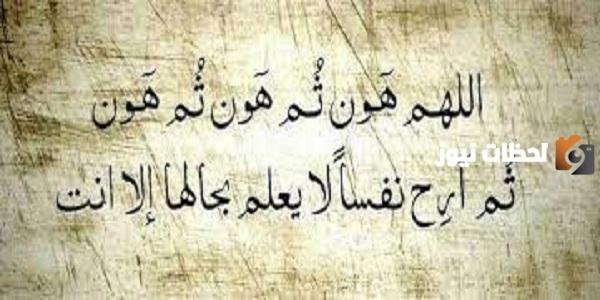 اللهم هَون ثُم هَون ثُم هَون
لحظات نيوز
ثُم أرِح نفساً لا يعلم بحالها إلا انت